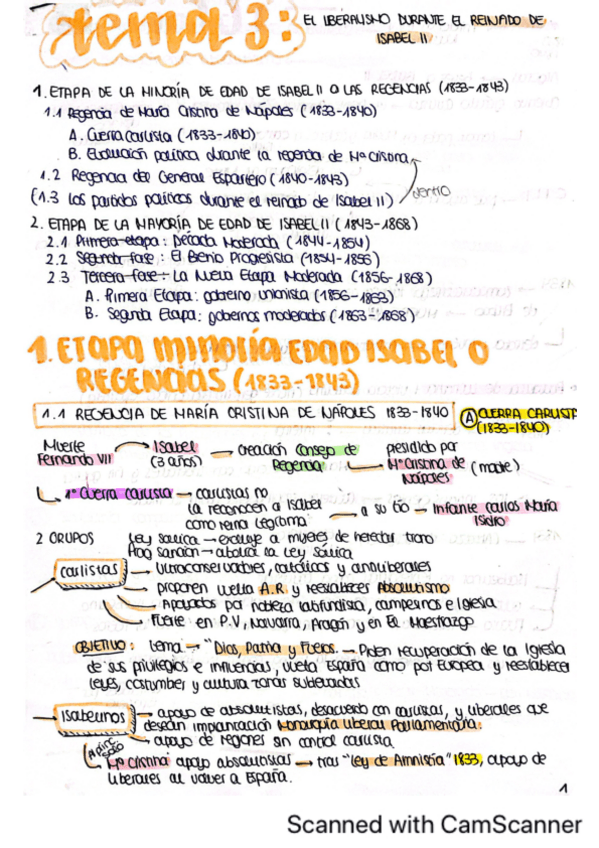 tema 3: EL LIBERALISMO DURANTE EL REINADO DE
ISABEL II
1. ETAPA DE LA MINORÍA DE EDAD DE ISABEL II O LAS REGENCIAS (1833-1843)
1.1 Regencia de María Cristina de Nápoles (1833-1840)
A. Guerra carlista (1833-1840)
B. Evolución política durante la regencia de Mª Cristina
1.2 Regencia del General Espartero (1840-1843)
(1.3 Los partidos políticos durante el reinado de Isabel II) dentro
2. ETAPA DE LA MAYORÍA DE EDAD DE ISABEL II (1843-1868)
2.1 Primera etapa: Década Moderada (1844-1854)
2.2 Segunda fase: El Bienio Progresista (1854-1856)
2.3 Tercera fase: La Nueva Etapa Moderada (1856-1868)
A. Primera Etapa: gobierno unionista (1856-1863)
B. Segunda Etapa: gobiernos moderados (1863-1868)
1. ETAPA MINORÍA EDAD ISABEL O
REGENCIAS (1833-1843)
1.1 REGENCIA DE MARÍA CRISTINA DE NÁPOLES 1833-1840 (A) GUERRA CARLIST
(1833-1840)
Muerte Fernando VII → Isabel (3 años) → creación consejo de Regencia → presidido por Mª Cristina de Nápoles (madre)
1ª Guerra carlista → carlistas no
la reconocen a Isabel
como reina legítima → a su tío → Infante Carlos María
Isidro
2 GRUPOS Ley sálica → excluye a mujeres de heredar trono
Prag sanción → abolía la Ley Sálica
carlistas → Ultraconservadores, católicos y antiliberales
→ proponen vuelta A.R. y restablecer Absolutismo
→ Apoyados por nobleza latifundista, campesinos e Iglesia
→ Fuerte en P.V, Navarra, Aragón y en El Maestrazgo
OBJETIVO: lema → "Dios, Patria y Fueros. → Piden recuperación de la Iglesia
de sus privilegios e influencias, vuelta España como por Europea y reestablecer
leyes, costumbres y cultura zonas sublevadas
Isabelinos → apoyo de absolutistas, desacuerdo con carlistas, y liberales que
desean implantación Monarquía liberal Parlamentaria.
→ apoyo de regiones sin control carlista
Mª Cristina apoyo absolutistas → tras "Ley de Amnistía" 1833, apoyo de
liberales al volver a España.
1
Scanned with CamScanner